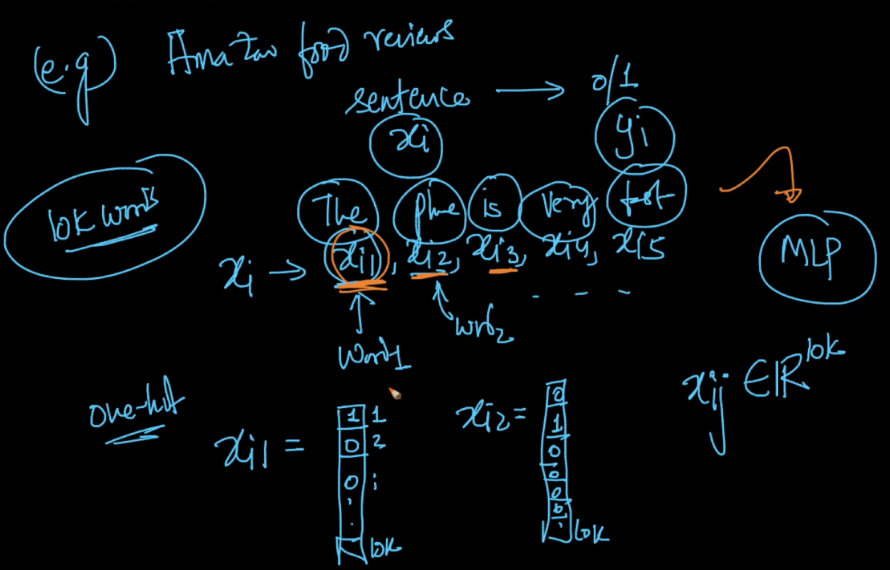 (e.g) Amazon food reviews
sentence → 0/1
xi yi
10k words
The phne is very fast
xi → xi1, xi2, xi3, xi4, xi5
MLP
- - -
word1
one-hot
xij ∈ ℝ10k
xi1 =
1 1
0 2
0 :
10k
xi2 =
0
1
0
0
0
0
10k